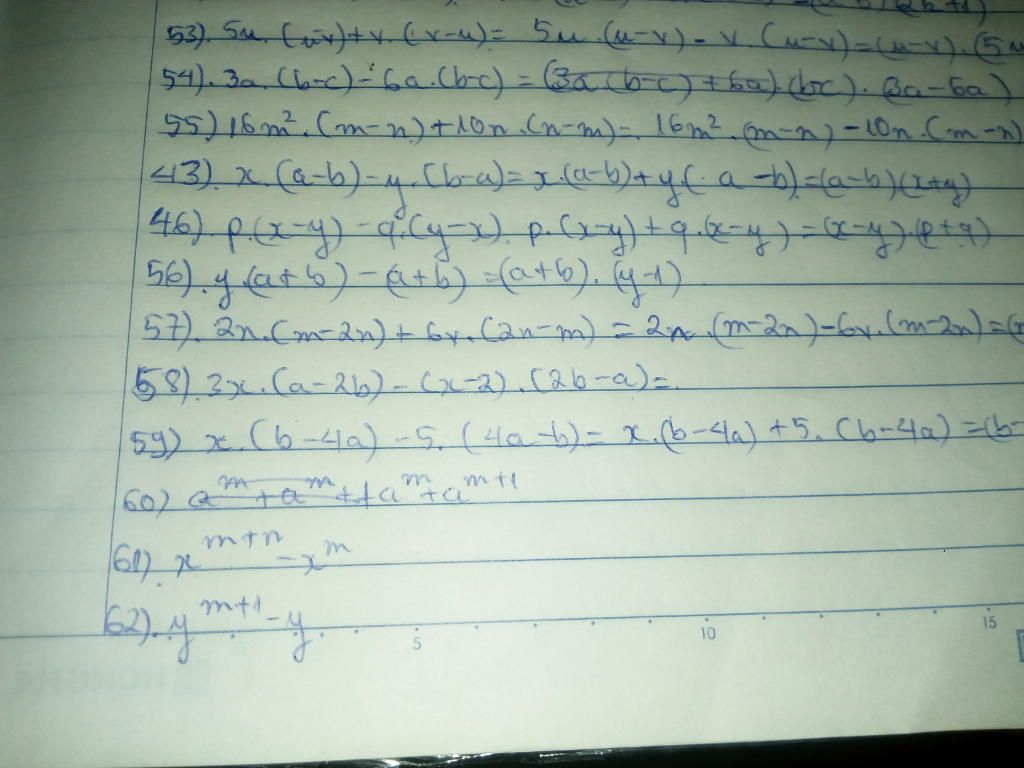 53). 5u.(u-v)+v.(v-u)= 5u.(u-v)-v.(u-v)=(u-v).(5u
54). 3a.(b-c)-6a.(b-c)=(3a(b-c)+6a).(b-c).(3a-6a)
55) 16m².(m-n)+10n.(n-m)= 16m².(m-n)-10n.(m-n)
43). x.(a-b)-y.(b-a)=x.(a-b)+y.(a-b)=(a-b)(x+y)
46) p.(x-y)-q.(y-x). p.(x-y)+q.(x-y)=(x-y).(p+q)
56). y.(a+b)-(a+b)=(a+b).(y-1)
57). 2n.(m-2n)+6v.(2n-m)=2n.(m-2n)-6v.(m-2n)=(
58). 3x.(a-2b)-(x-2).(2b-a)=.
59) x.(b-4a)-5.(4a-b)= x.(b-4a)+5.(b-4a)=(b-
60) a^m+a^m+1 a^m+a^{m+1}
61). x^{m+n}-x^m
62). y^{m+1}-y
5 10 15